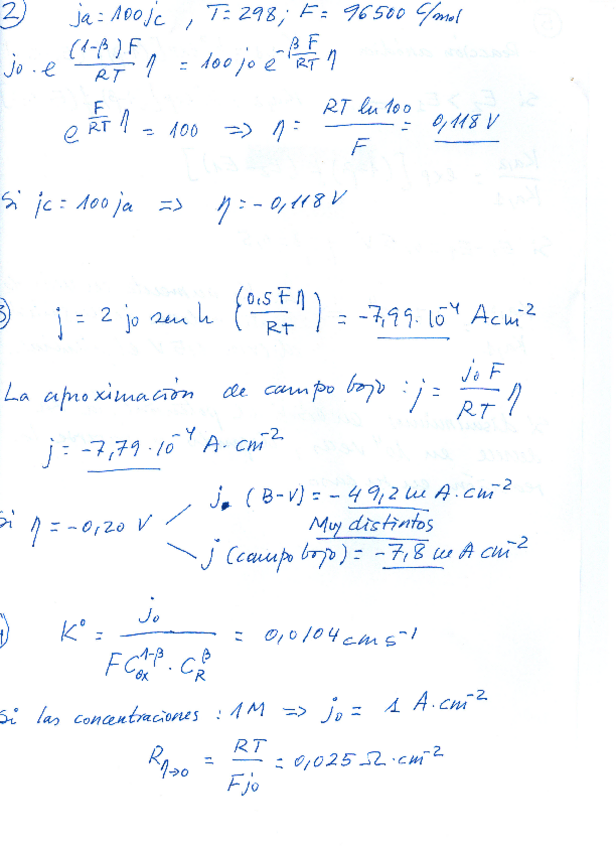 2) ja = 100 jc , T = 298 ; F = 96500 C/mol
jo · e^((1-β)F/RT η) = 100 jo e^(-βF/RT η)
e^(F/RT η) = 100 => η = RT ln 100 / F = 0,118 V
Si jc = 100 ja => η = -0,118 V
3) j = 2 jo sen h {0.5 F η / RT} = -7,99 · 10^-4 A cm^-2
La aproximación de campo bajo : j = jo F / RT η
j = -7,79 · 10^-4 A · cm^-2
Si η = -0,20 V
j (B-V) = -49,2 m A · cm^-2
Muy distintos
j (campo bajo) = -7,8 m A cm^-2
K° = jo / F Cox^(1-β) · CR^β = 0,0104 cm s^-1
Si las concentraciones : 1M => jo = 1 A · cm^-2
Rη→0 = RT / F jo = 0,025 Ω · cm^-2